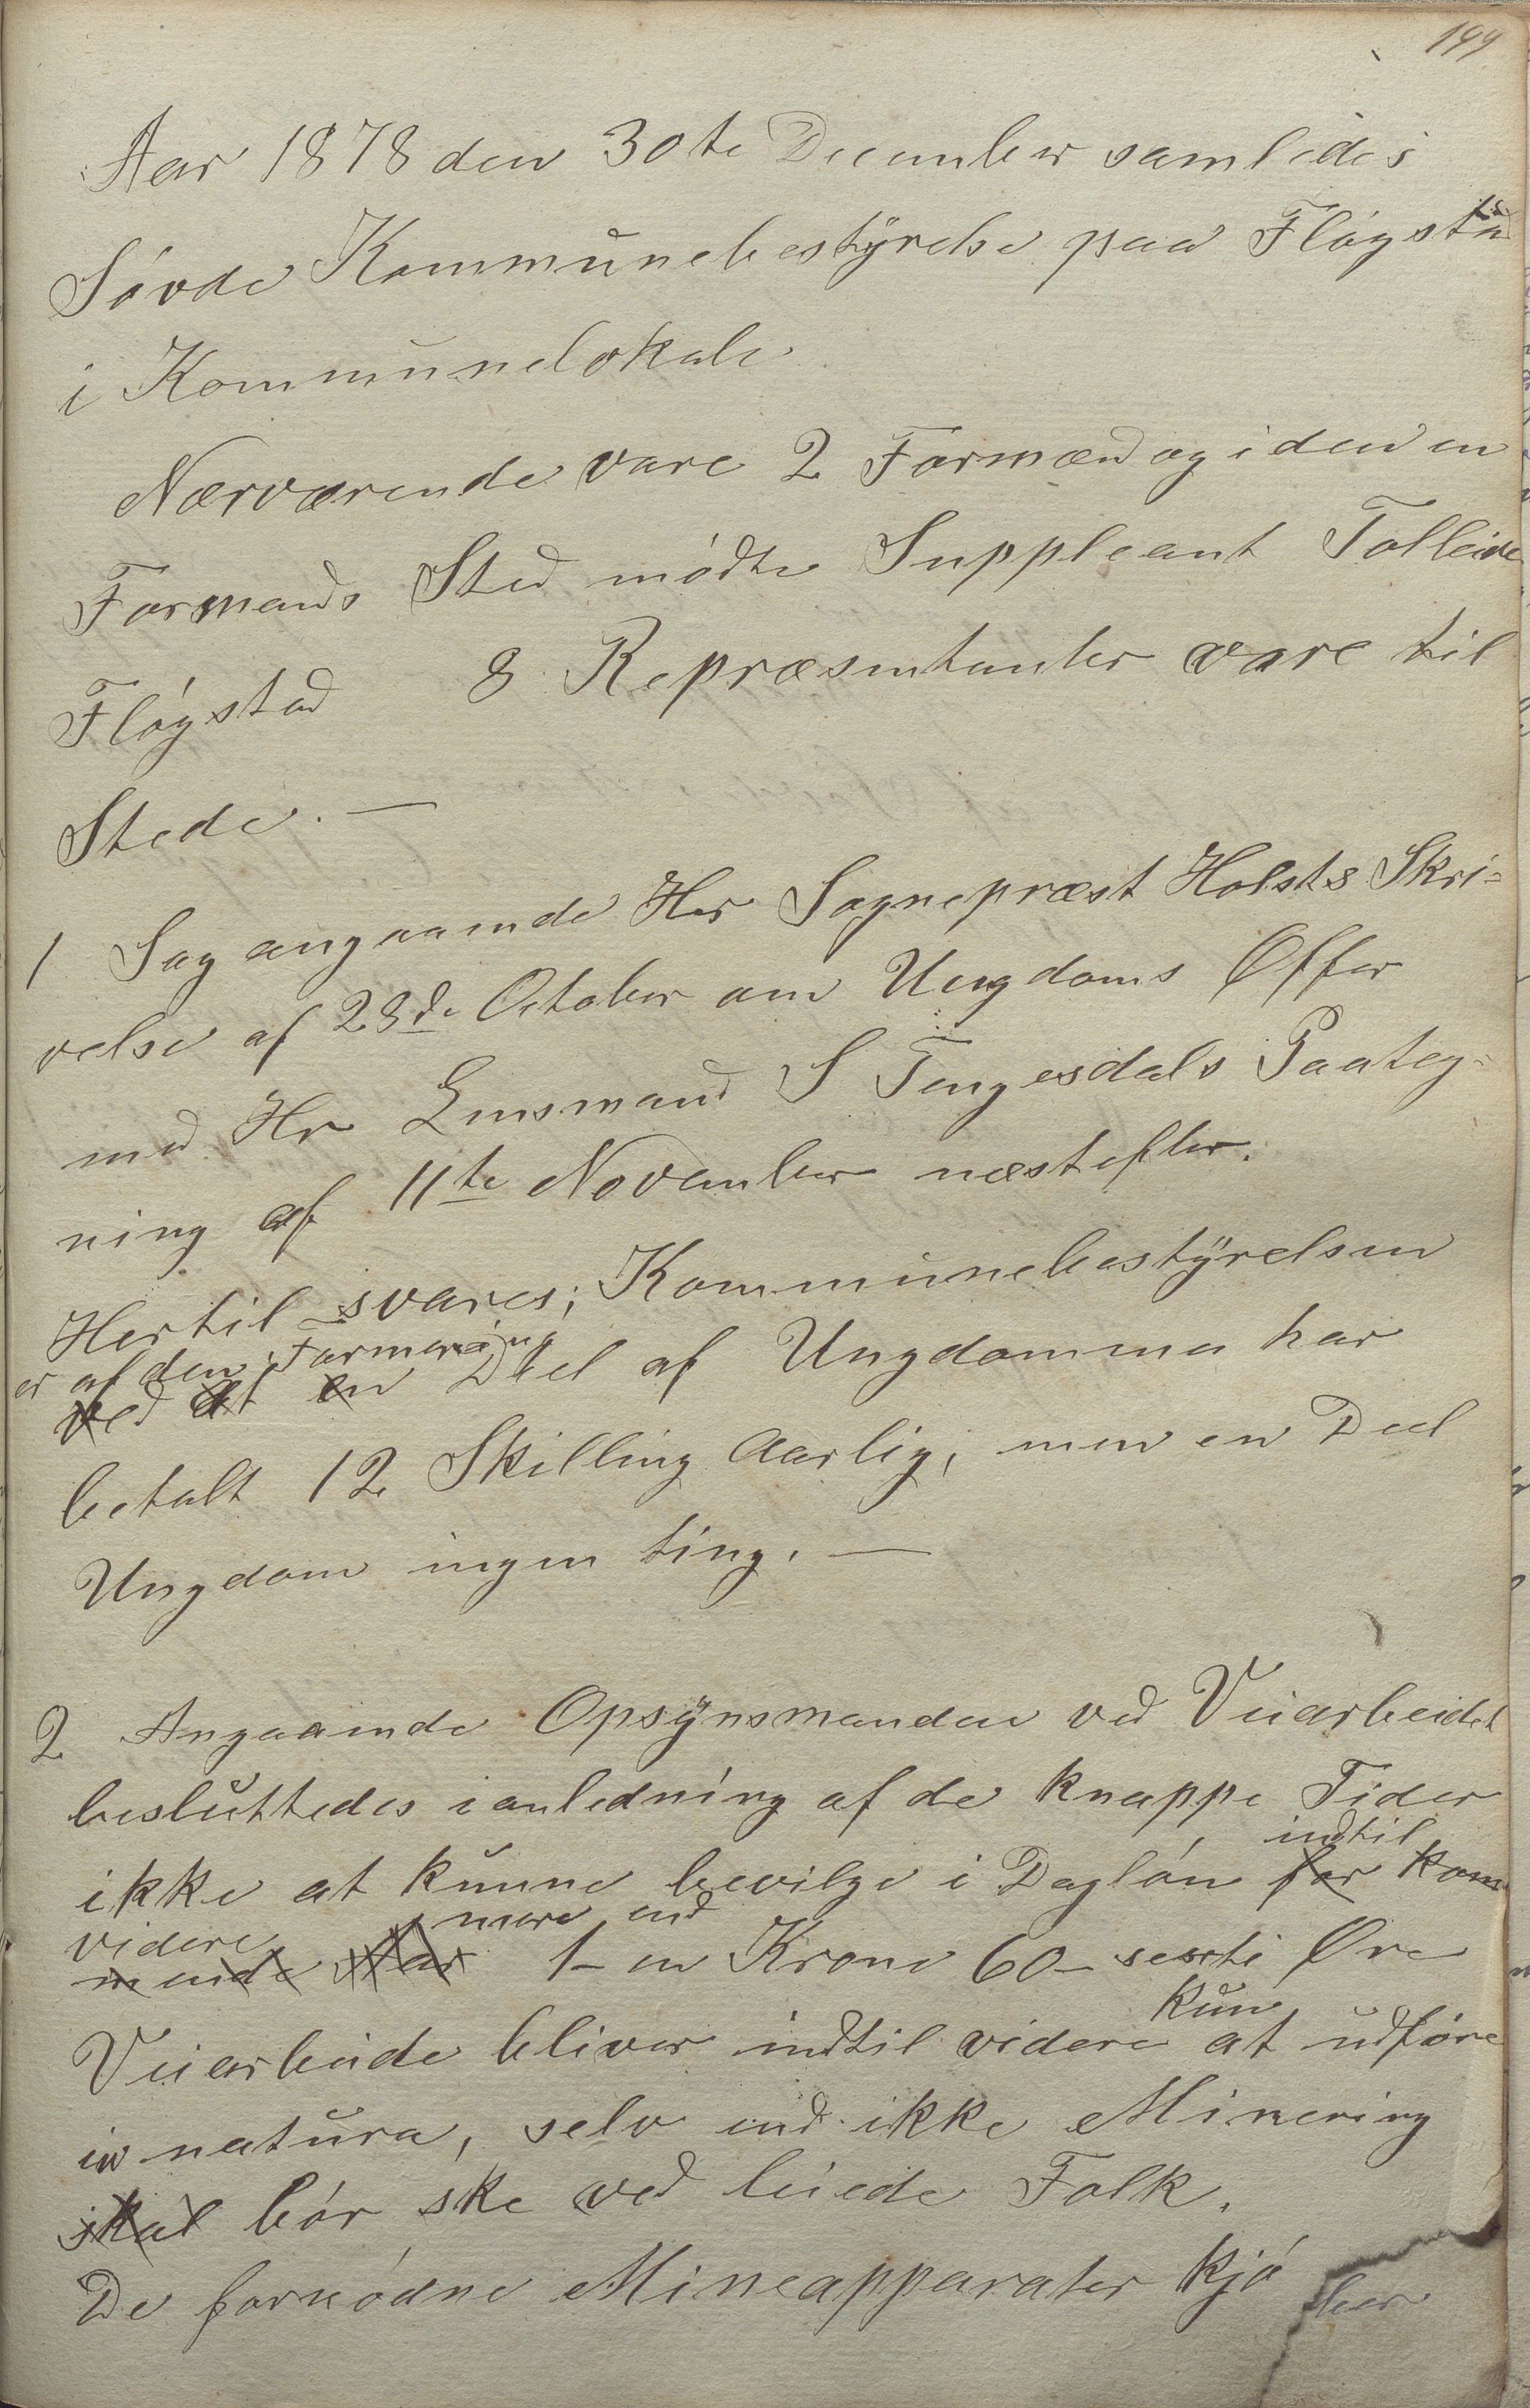 199
Aar 1878 den 30te December samledes
Søvde Kommunebestÿrelse paa Fløgstad
i Kommunelokale
Nærværende vare 2 Formænd og i den en
Formands Sted mødte Suppleant Tolleiv
Fløgstad 8 Repræsentanter vare til
Stede. —
1 Sag angaaende Her Sognepræst Holsts Skri=
velse af 28de October om Ungdoms Offer
med Hr Lensmand S Tengesdals Paateg=
ning af 11te November næstefter.
Hertil svares; Kommunebestÿrelsen
er af den Formening
ved at en Deel af Ungdommen har
betalt 12 Skilling Aarlig, men en Deel
Ungdom ingen ting. —
2 Angaaende Opsÿnsmanden ved Veiarbeidet
besluttedes i anledning af de knappe Tider
indtil
ikke at kunne bevilge i Dagløn for kom
videre mere end
mende Aar 1 – en Krone 60 – sexti Øre
kun
Veiarbeide bliver indtil videre at udføre
in natura, selv end ikke Minering
skal bør ske ved leiede Folk.
De fornødne Mineapparater kjø ber